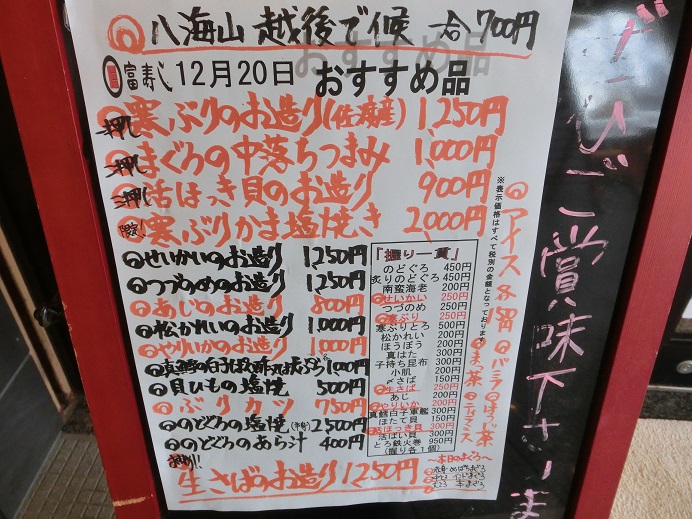 八海山 越後で候 一合 700円
富寿し 12月20日 おすすめ品
押し 寒ぶりのお造り(佐渡産) 1,250円
押し まぐろの中落ちつまみ 1,000円
押し 活ほっき貝のお造り 900円
限定! 寒ぶりかま塩焼き 2,000円
せいかいのお造り 1,250円
つづのめのお造り 1,250円
あじのお造り 800円
松かれいのお造り 1,000円
やりいかのお造り 1,000円
真鱈の白子ぽん酢 又は天ぷら 1,000円
貝ひもの塩焼 500円
ぶりカツ 750円
のどぐろの塩焼(半身) 2,500円
のどぐろのあら汁 400円
生さばのお造り 1,250円
「握り一貫」
のどぐろ 450円
炙りのどぐろ 450円
南蛮海老 200円
せいかい 250円
つづのめ 250円
寒ぶり 300円
寒ぶりとろ 500円
松かれい 200円
ほうぼう 200円
真はた 300円
子持ち昆布 300円
小肌 200円
〆さば 150円
生さば 250円
あじ 200円
やりいか 200円
真鱈白子軍艦 300円
ほたて貝 150円
活ほっき貝 300円
活ばい貝 300円
とろ鉄火巻 950円
(握り各1個)
〜本日のまぐろ〜
※表示価格はすべて税別の金額となっております
アイス 各150円
バニラ
ほうじ茶
まっ茶
ぜひご賞味下さいま